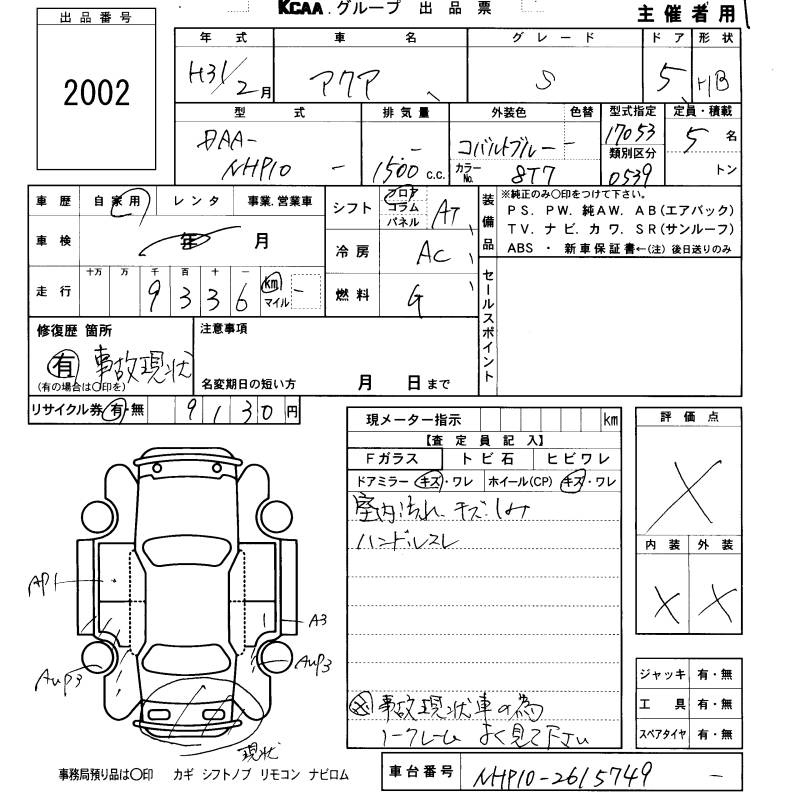 KCAA.グループ 出品票
主催者用
出品番号
2002
年式 車名 グレード ドア 形状
H31/2月 アクア S 5 HB
型式 排気量 外装色 色替 型式指定 定員・積載
DAA-NHP10 - 1500 c.c. - コバルトブルー - 17053 5名
カラーNo. 8T7 類別区分 0539 トン
車歴 自家用 レンタ 事業.営業車
車検 年 月
走行 十万 万 千 百 十 一
9 3 3 6 km マイル -
シフト フロア コラム パネル AT
冷房 AC
燃料 G
装備品
※純正のみ○印をつけて下さい。
PS. PW. 純AW. AB(エアバック)
TV. ナビ. カワ. SR(サンルーフ)
ABS ・ 新車保証書←(注)後日送りのみ
セールスポイント
修復歴 箇所
有 事故現状
(有の場合は○印を)
注意事項
名変期日の短い方 月 日まで
リサイクル券 有・無 9 1 3 0 円
現メーター指示 km
【査定員記入】
Fガラス トビ石 ヒビワレ
ドアミラー キズ・ワレ ホイール(CP) キズ・ワレ
室内汚れ、キズ、しみ
ハンドルスレ
事故現状車の為
ノークレーム よく見て下さい
評価点
X
内装 外装
X X
AP1
A3
AUP3
AUP3
現状
ジャッキ 有・無
工具 有・無
スペアタイヤ 有・無
事務局預り品は○印 カギ シフトノブ リモコン ナビロム
車台番号 NHP10-2615749 -